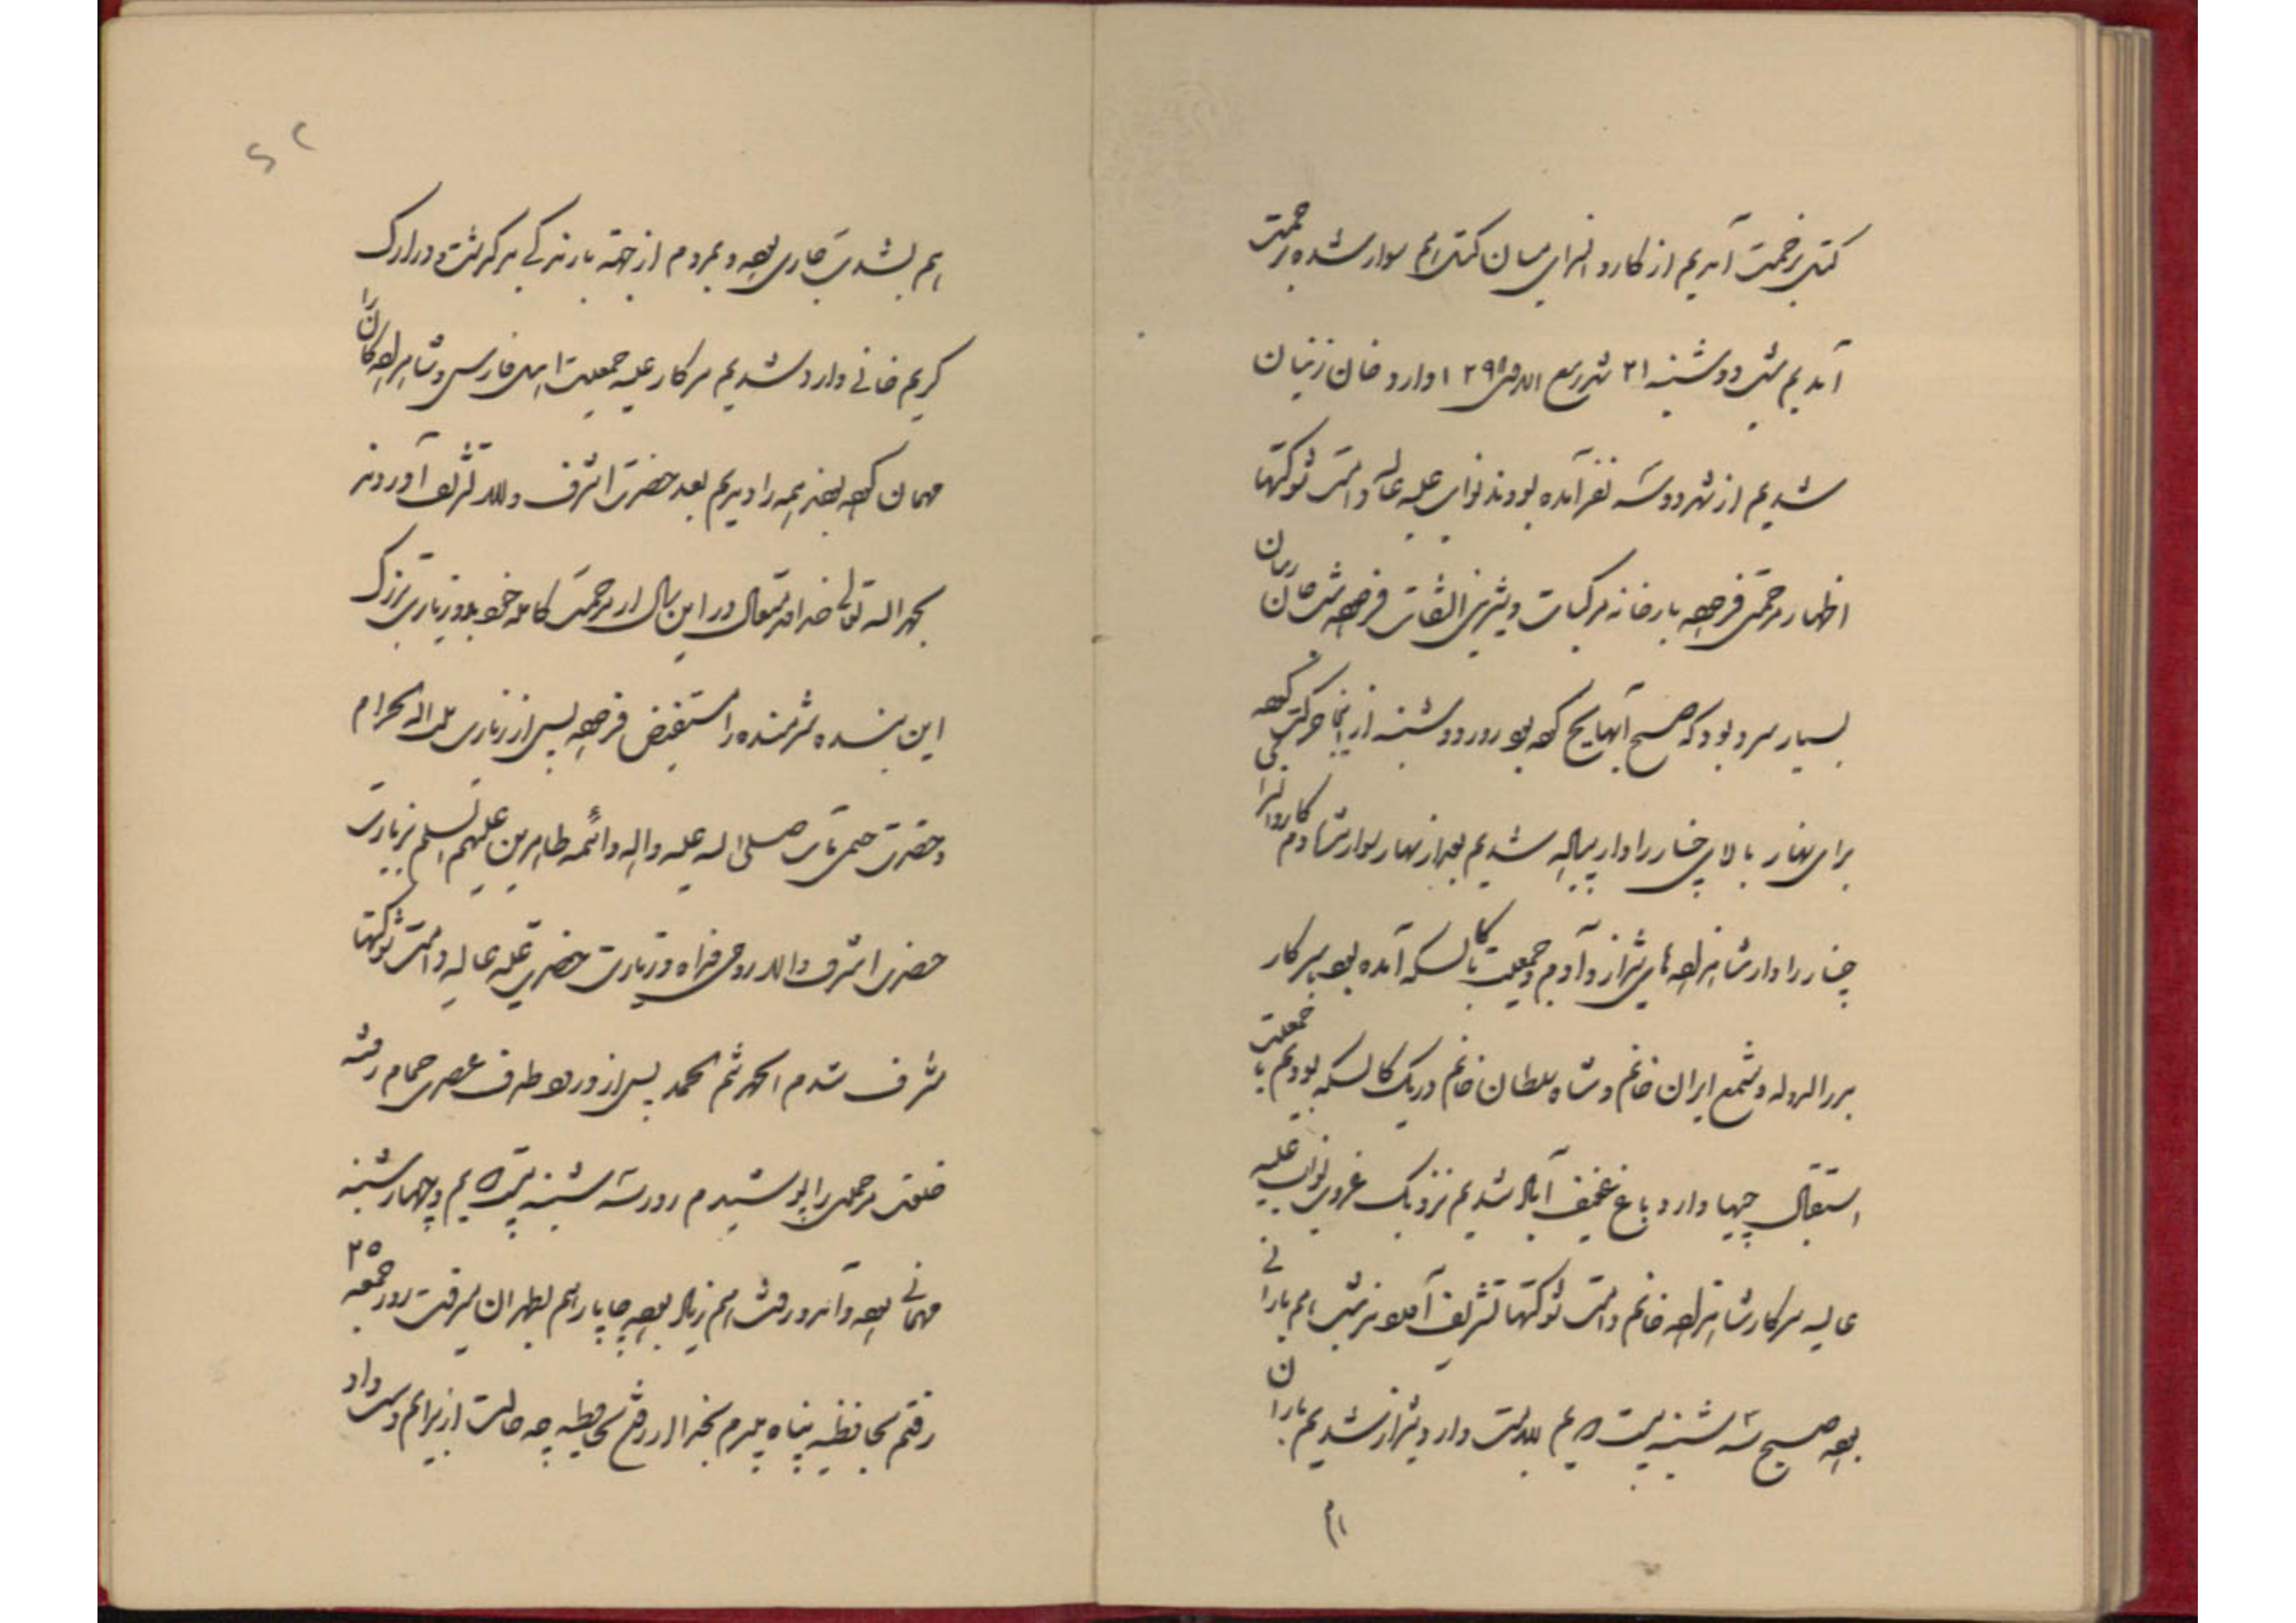 کتل بزحمت آمدیم از کاروانسرای میان کتل هم سوار شده بزحمت
آمدیم شب دوشنبه ۲۱ شهر ربیع الاول ۱۲۹۸ وارد خان زنیان
شدیم از شهر دو سه نفر آمده بودند نواب علیه عالیه دامت شوکتها
اظهار مرحمتی فرموده بارخانه مرکبات و شیرینی التفات فرموده شب خان زنیان
بسیار سرد بود که صبح آبها یخ کرده بود روز دوشنبه از اینجا حرکت کرده
برای نهار بالای چنار راهدار پیاده شدیم بعد از نهار سوار شده دم کاروانسرا
چنار راهدار شاهزاده های شیراز و آدم و جمعیت با کالسکه آمده بود با سرکار
بدرالدوله و شمع ایران خانم و شاه سلطان خانم در یک کالسکه بودیم با جمعیت
استقبال چیها وارد باغ عفیف آباد شدیم نزدیک غروب نواب علیه
عالیه سرکار شاهزاده خانم دامت شوکتها تشریف آوردند شب هم بارانی
بود صبح سه شنبه بیست و دویم بسلامت وارد شیراز شدیم باران
هم بشدت جاری بود و مردم از جهة بارندگی برگشتند در ارک
کریم خانی وارد شدیم سرکار علیه جمعیت اهل فارس و شاهزادگان را
مهمان کرده بودند همه را دیدیم بعد حضرت اشرف والد تشریف آوردند
بحمدالله تعالی خداوند متعال در این سال از مرحمت کامله خود بدو زیارت بزرگ
این بنده شرمنده را مستفیض فرموده پس از زیارت بیت الله الحرام
و حضرت ختمی مآب صلی الله علیه واله و ائمه طاهرین علیهم السلم بزیارت
حضرت اشرف والد روحی فداه و زیارت حضرت علیه عالیه دامت شوکتها
مشرف شدم الحمد ثم الحمد پس از ورود طرف عصری حمام رفته
خلعت مرحمتی را پوشیدم روز سه شنبه بیست دویم و چهارشنبه
مهمانی بود و آمد و رفت هم زیاد بود چاپار هم بطهران میرفت روز جمعه ۲۵
رفتم بحافظیه پناه میبرم بخدا از رفتن بحافظیه چه حالت از برایم دست داد